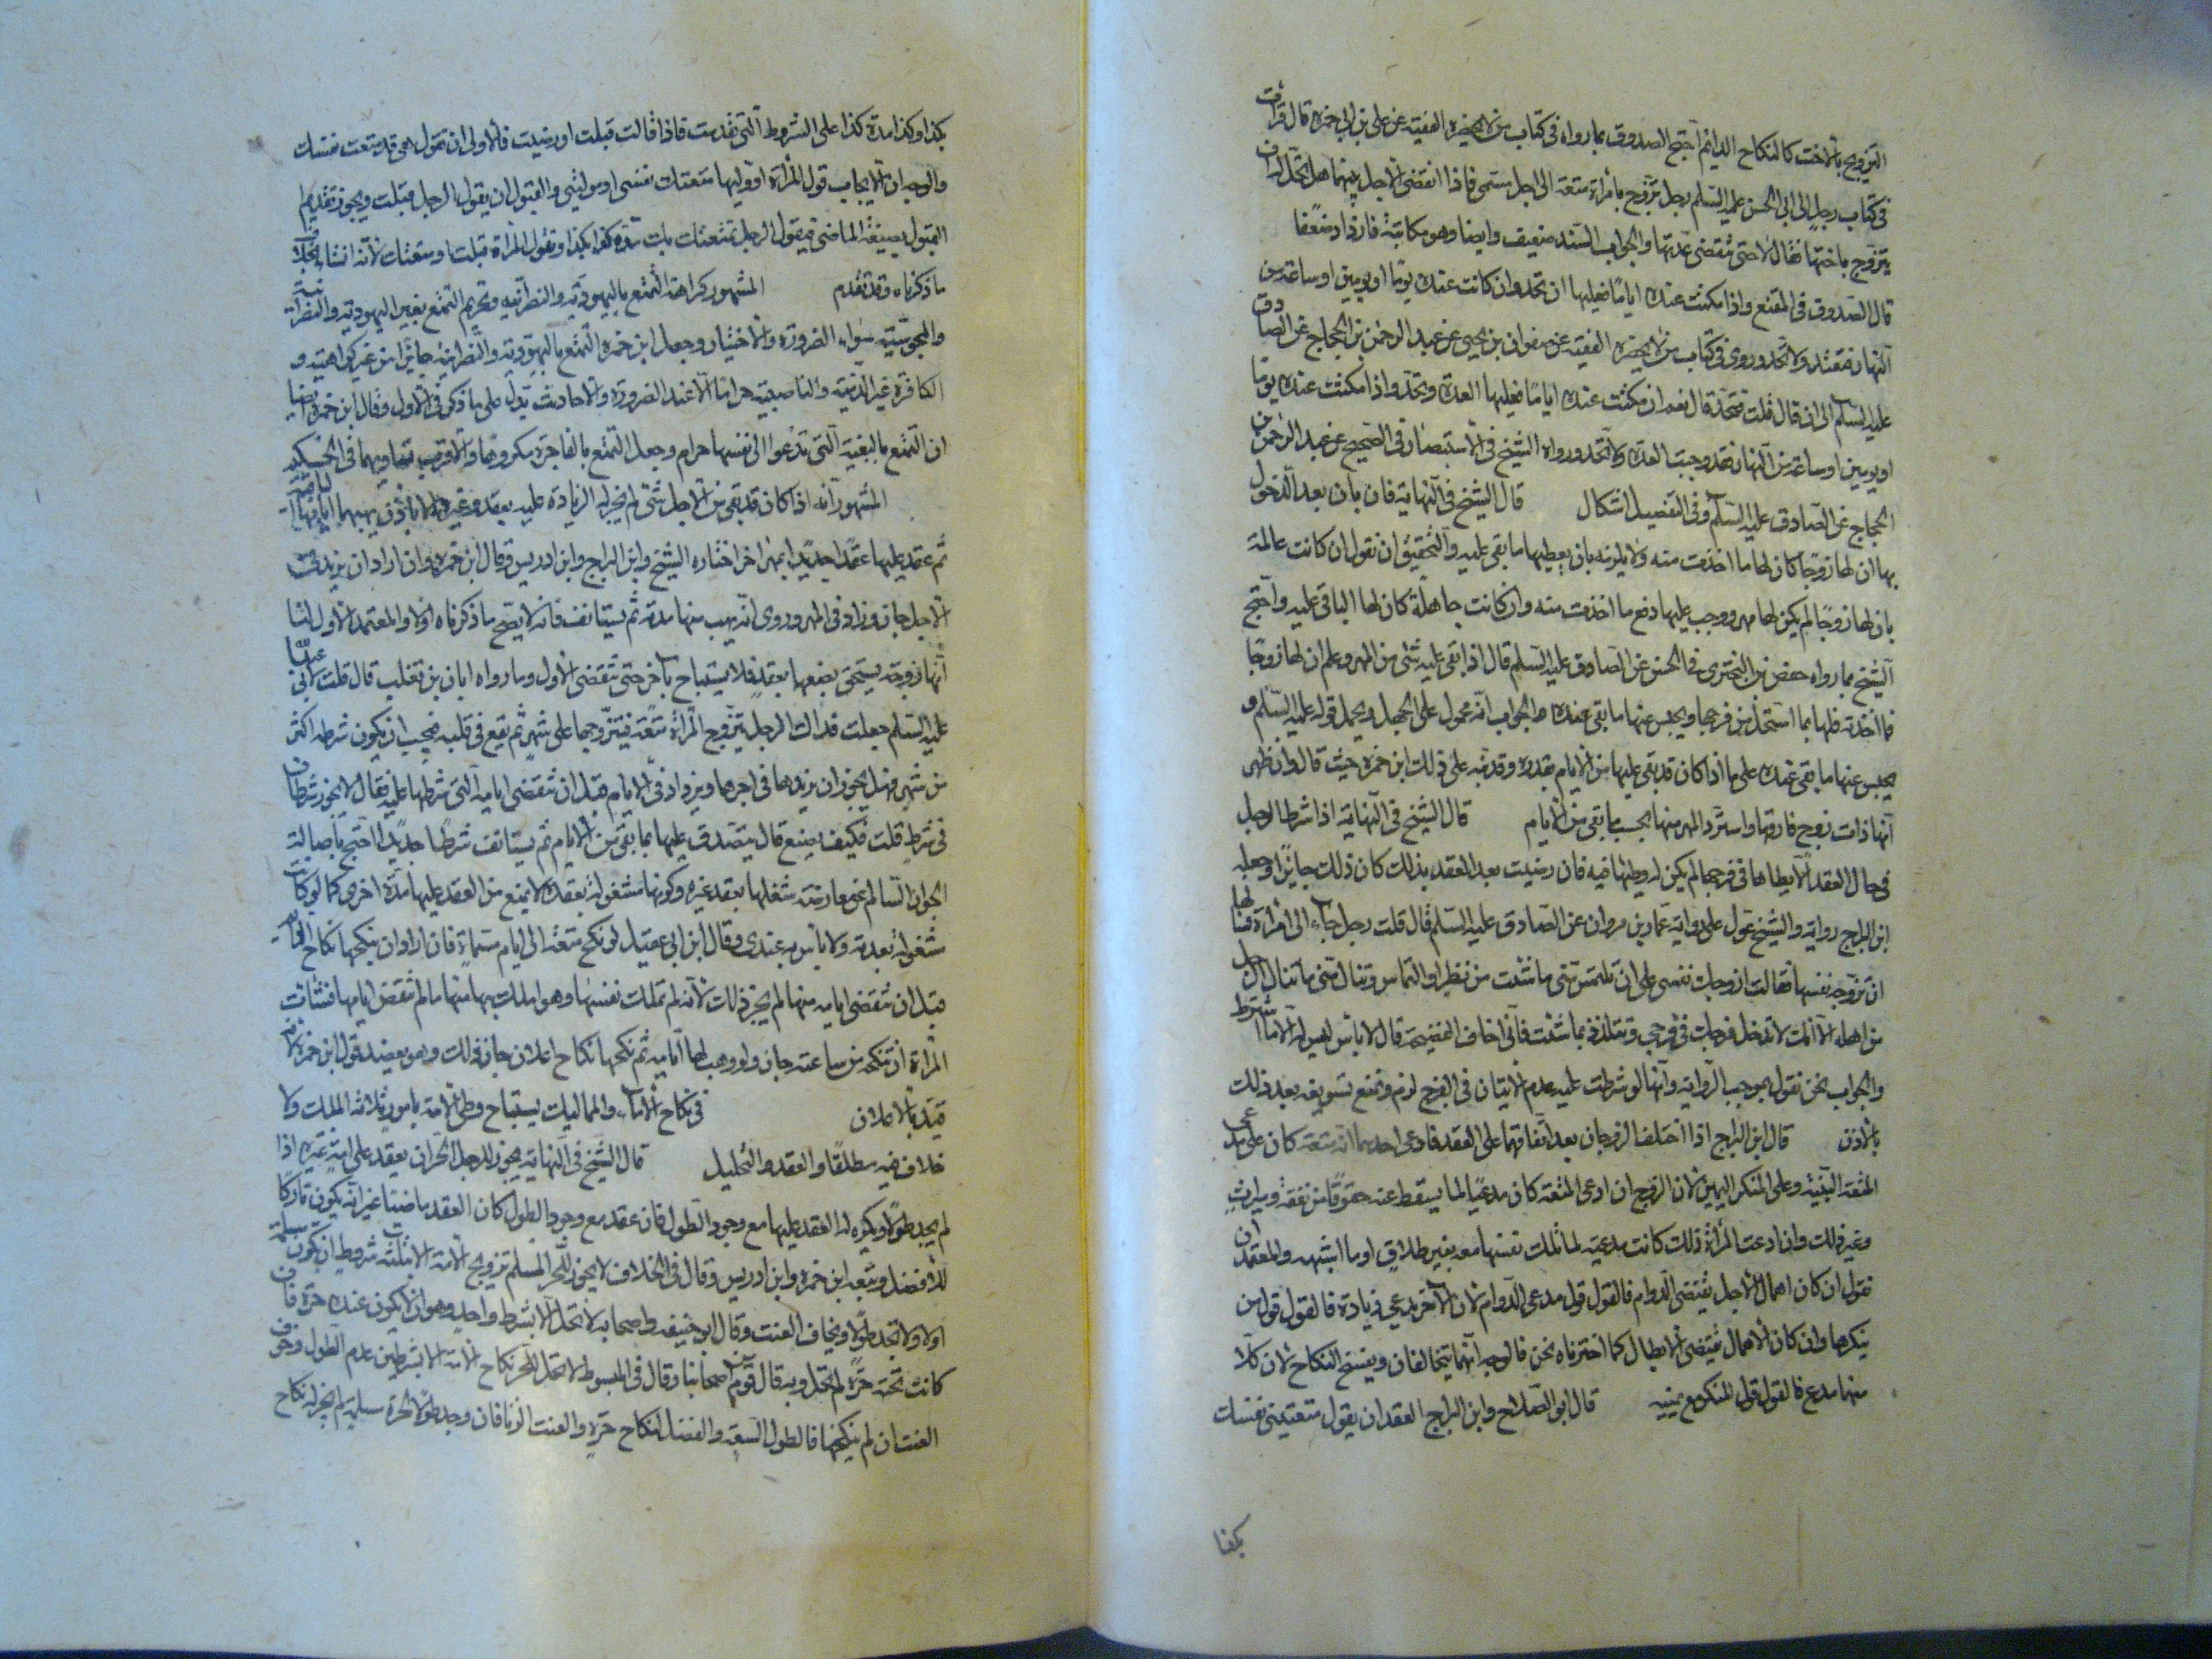 التزويج بالاخت كالنكاح الدائم احتج الصدوق بما رواه في كتاب من لا يحضره الفقيه عن علي بن ابي حمزه قال قرأت
في كتاب رجل الى ابي الحسن عليه السلم رجل تزوج بامرأة متعة الى اجل مسمى فاذا انقضى الاجل بينهما هل يحل له ان
يتزوج باختها فقال لا حتى تنقضي عدتها والجواب السند ضعيف وايضا وهو مكاتبة فازداد ضعفا
قال الصدوق في المقنع واذا مكثت عنده اياما فعليها ان تحد وان كانت عنده يوما او يومين او ساعة من
النهار فتعتد ولا تحد وروى في كتاب من لا يحضره الفقيه عن صفوان بن يحيى عن عبد الرحمن بن الحجاج عن الصادق
عليه السلم الى ان قال قلت فتحد قال نعم اذا مكثت عنده اياما فعليها العدة وتحد واذا مكثت عنده يوما
او يومين او ساعة من النهار فقد وجبت العدة ولا تحد ورواه الشيخ في الاستبصار في الصحيح عن عبد الرحمن بن
الحجاج عن الصادق عليه السلم وفي التفصيل اشكال قال الشيخ في النهاية فان بان بعد الدخول
بها ان لها زوجا كان لها ما اخذت منه ولا يلزمه بان يعطيها ما بقى عليه والتحقيق ان نقول ان كانت عالمة
بان لها زوجا لم يكن لها مهر ووجب عليها دفع ما اخذت منه وان كانت جاهلة كان لها الباقي عليه واحتج
الشيخ بما رواه حفص بن البختري في الحسن عن الصادق عليه السلم قال اذا بقى عليه شئ من المهر وعلم ان لها زوجا
فما اخذته فلها بما استحل من فرجها ويحبس عنها ما بقى عنده والجواب انه محمول على الجهل ويحمل قوله عليه السلم و
يحبس عنها ما بقى عنده على ما اذا كان قد بقى عليها من الايام بقدره وقد نبه على ذلك ابن حمزة حيث قال وان ظهر
انها ذات زوج فارقها واسترد المهر منها بحسب ما بقى من الايام قال الشيخ في النهاية اذا شرط الرجل
في حال العقد الا يطاها في فرجها لم يكن له وطئها فيه فان رضيت بعد العقد بذلك كان ذلك جايزا وجعله
ابن البراج رواية والشيخ عول على رواية عمار بن مروان عن الصادق عليه السلم قال قلت رجل جاء الى امرأة فسألها
ان تزوجه نفسها فقالت ازوجك نفسي على ان تلتمس مني ما شئت من نظر او التماس وتنال مني ما ينال الرجل
من اهله الا انك لا تدخل فرجك في فرجي وتتلذذ بما شئت فاني اخاف الفضيحة قال لا بأس ليس له الا ما اشترط
والجواب نحن نقول بموجب الرواية وانها لو شرطت عليه عدم الاتيان في الفرج لزم ونمنع تسويغه بعد ذلك
بالاذن قال ابن البراج اذا اختلف الزوجان بعد اتفاقهما على العقد فادعى احدهما انه متعة كان على مدعي
المتعة البينة وعلى المنكر اليمين لان الزوج ان ادعى المتعة كان مدعيا لما يسقط عنه حقوقا من نفقة وميراث
وغير ذلك وان ادعت المرأة ذلك كانت مدعية لما تملك نفسها معه بغير طلاق او ما اشبهه والمعتمد ان
نقول ان كان اهمال الاجل يقتضى الدوام فالقول قول مدعي الدوام لان الاخر يدعي زيادة فالقول قول من
ينكرها وان كان الاهمال يقتضى الابطال كما اخترناه نحن فالوجه انهما يتحالفان ويفسخ النكاح لان كلا
منهما مدع فالقول قول المنكر مع يمينه قال ابو الصلاح وابن البراج العقد ان يقول متعتيني نفسك
بكذا
بكذا وكذا مدة كذا على الشروط التي تقدمت فاذا قالت قبلت او رضيت فالاولى ان تقول هي قد متعت نفسك
والوجه ان الايجاب قول المرأة او وليها متعتك نفسي او موليتي والقبول ان يقول الرجل قبلت ويجوز تقديم
القبول بصيغة الماضي فيقول الرجل تمتعت بك مدة كذا بكذا وتقول المرأة قبلت او متعتك لانه انشاء بخلاف
ما ذكرناه وقد تقدم المشهور كراهة التمتع باليهودية والنصرانية وتحريم التمتع بغير اليهودية والنصرانية
والمجوسية سواء الضرورة والاختيار وجعل ابن حمزه التمتع باليهودية والنصرانية جايزا من غير كراهية و
الكافرة غير الذمية والناصبية حراما الا عند الضرورة والاحاديث تدل على ما ذكر في الاول وقال ابن حمزه ايضا
ان التمتع بالبغية التي تدعوا الى نفسها حرام وجعل التمتع بالفاجرة مكروها والاقرب تساويهما في الحكم
المشهور انه اذا كان قد بقى من الاجل شئ لم يجز له الزيادة عليه بعقد وغيره الا بان يهبها ايامها الباقية
ثم عقد عليها عقدا جديدا بمهر اخر اختاره الشيخ وابن البراج وابن ادريس وقال ابن حمزه وان اراد ان يزيد في
الاجل جاز وزاد في المهر وروى انه يهب منها مدته ثم يستانف فانه لا يصح ما ذكرناه اولا والمعتمد الاول لنا
انها زوجة يستحق بضعها بعقد فلا يستباح باخر حتى تنقضى الاول وما رواه ابان بن تغلب قال قلت لابي عبد الله
عليه السلم جعلت فداك الرجل يتزوج المرأة متعة فيتزوجها على شهر ثم يقع في قلبه فيحب ان يكون شرطه اكثر
من شهر فهل يجوز ان يزيدها في اجرها ويزداد في الايام قبل ان تنقضى ايامه التي شرطها عليه فقال لا يجوز شرطان
في شرط قلت فكيف يصنع قال يتصدق عليها بما بقى من الايام ثم يستانف شرطا جديدا احتج باصالة
الجواز السالم عن معارضة شغلها بعقد غيره وكونها مشغولة بعقده لا يمنع من العقد عليها مدة اخرى كما لو كانت
مشغولة بعدته ولا باس به عندي وقال ابن ابي عقيل لو نكح متعة الى ايام مسماة فان اراد ان ينكحها نكاح الدوام
قبل ان تنقضى ايامه منها لم يجز ذلك لانه لم تملك نفسها وهو املك بها منها ما لم تنقض ايامها فشاءت
المرأة ان تنكحه من ساعته جاز ولو وهب لها ايامه ثم نكحها نكاح اعلان جاز ذلك وهو يعضد قول ابن حمزه لانه
قيد بالاعلان في نكاح الاماء والمماليك يستباح وطى الامة بامور ثلاثة الملك ولا
خلاف فيه مطلقا والعقد والتحليل قال الشيخ في النهاية يجوز للرجل الحر ان يعقد على امة غيره اذا
لم يجد طولا ويكره له العقد عليها مع وجود الطول فان عقد مع وجود الطول كان العقد ماضيا غير انه يكون تاركا
للافضل وتبعه ابن حمزه وابن ادريس وقال في الخلاف لا يجوز للحر المسلم تزويج الامة الا بثلثة شروط ان يكون مسلمة
اولا ولا تجد طولا ويخاف العنت وقال ابو حنيفه واصحابه لا تحل الا بشرط واحد وهو ان لا يكون عنده حرة فان
كانت تحته حرة لم تحل وبه قال قوم من اصحابنا وقال في المبسوط لا تحل للحر نكاح الامة الا بشرطين عدم الطول وخوف
العنت ان لم ينكحها فالطول السعة والفضل لنكاح حرة والعنت الزنا فان وجد طولا لحرة مسلمة لم يجز له نكاح